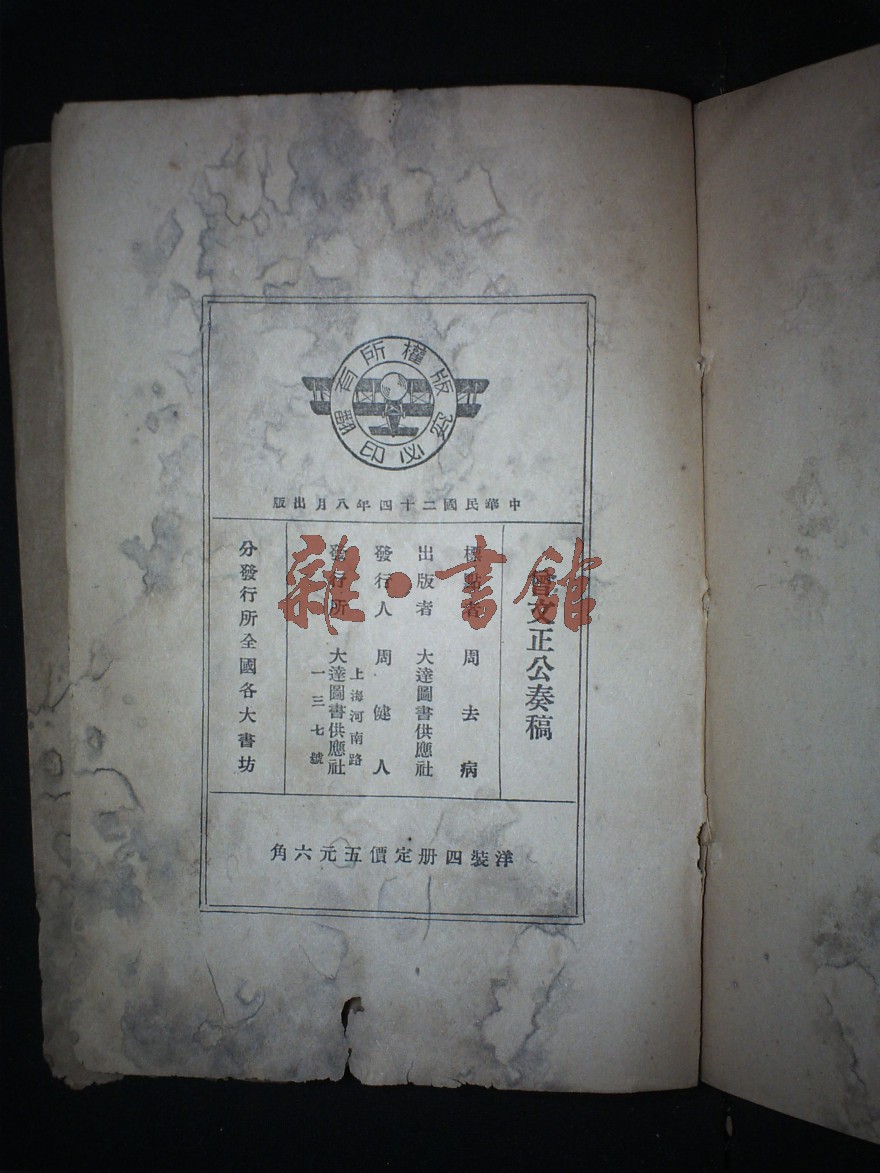 版權所有翻印必究
中華民國二十四年八月出版
曾文正公奏稿
標點者 周去病
出版者 大達圖書供應社
發行人 周健人
發行所 大達圖書供應社
上海河南路
一三七號
分發行所全國各大書坊
洋裝四册定價五元六角
雜·書館